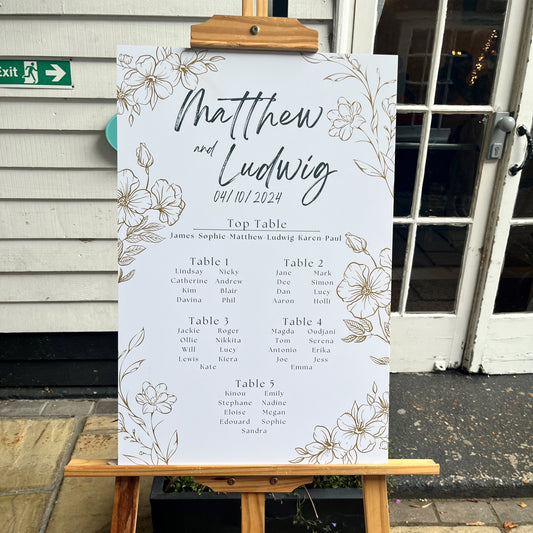 Exit
Matthew
and
Ludwig
04/10/2024
Top Table
James Sophie Matthew Ludwig Karen Paul
Table 1
Lindsay Nicky
Catherine Andrew
Kim Blair
Davina Phil
Table 2
Jane Mark
Dee Simon
Dan Lucy
Aaron Holli
Table 3
Jackie Roger
Ollie Nikkita
Will Lucy
Lewis Kiera
Kate
Table 4
Magda Oudjani
Tom Serena
Antonio Erika
Joe Jess
Emma
Table 5
Kinou Emily
Stephane Nadine
Eloise Megan
Edouard Sophie
Sandra